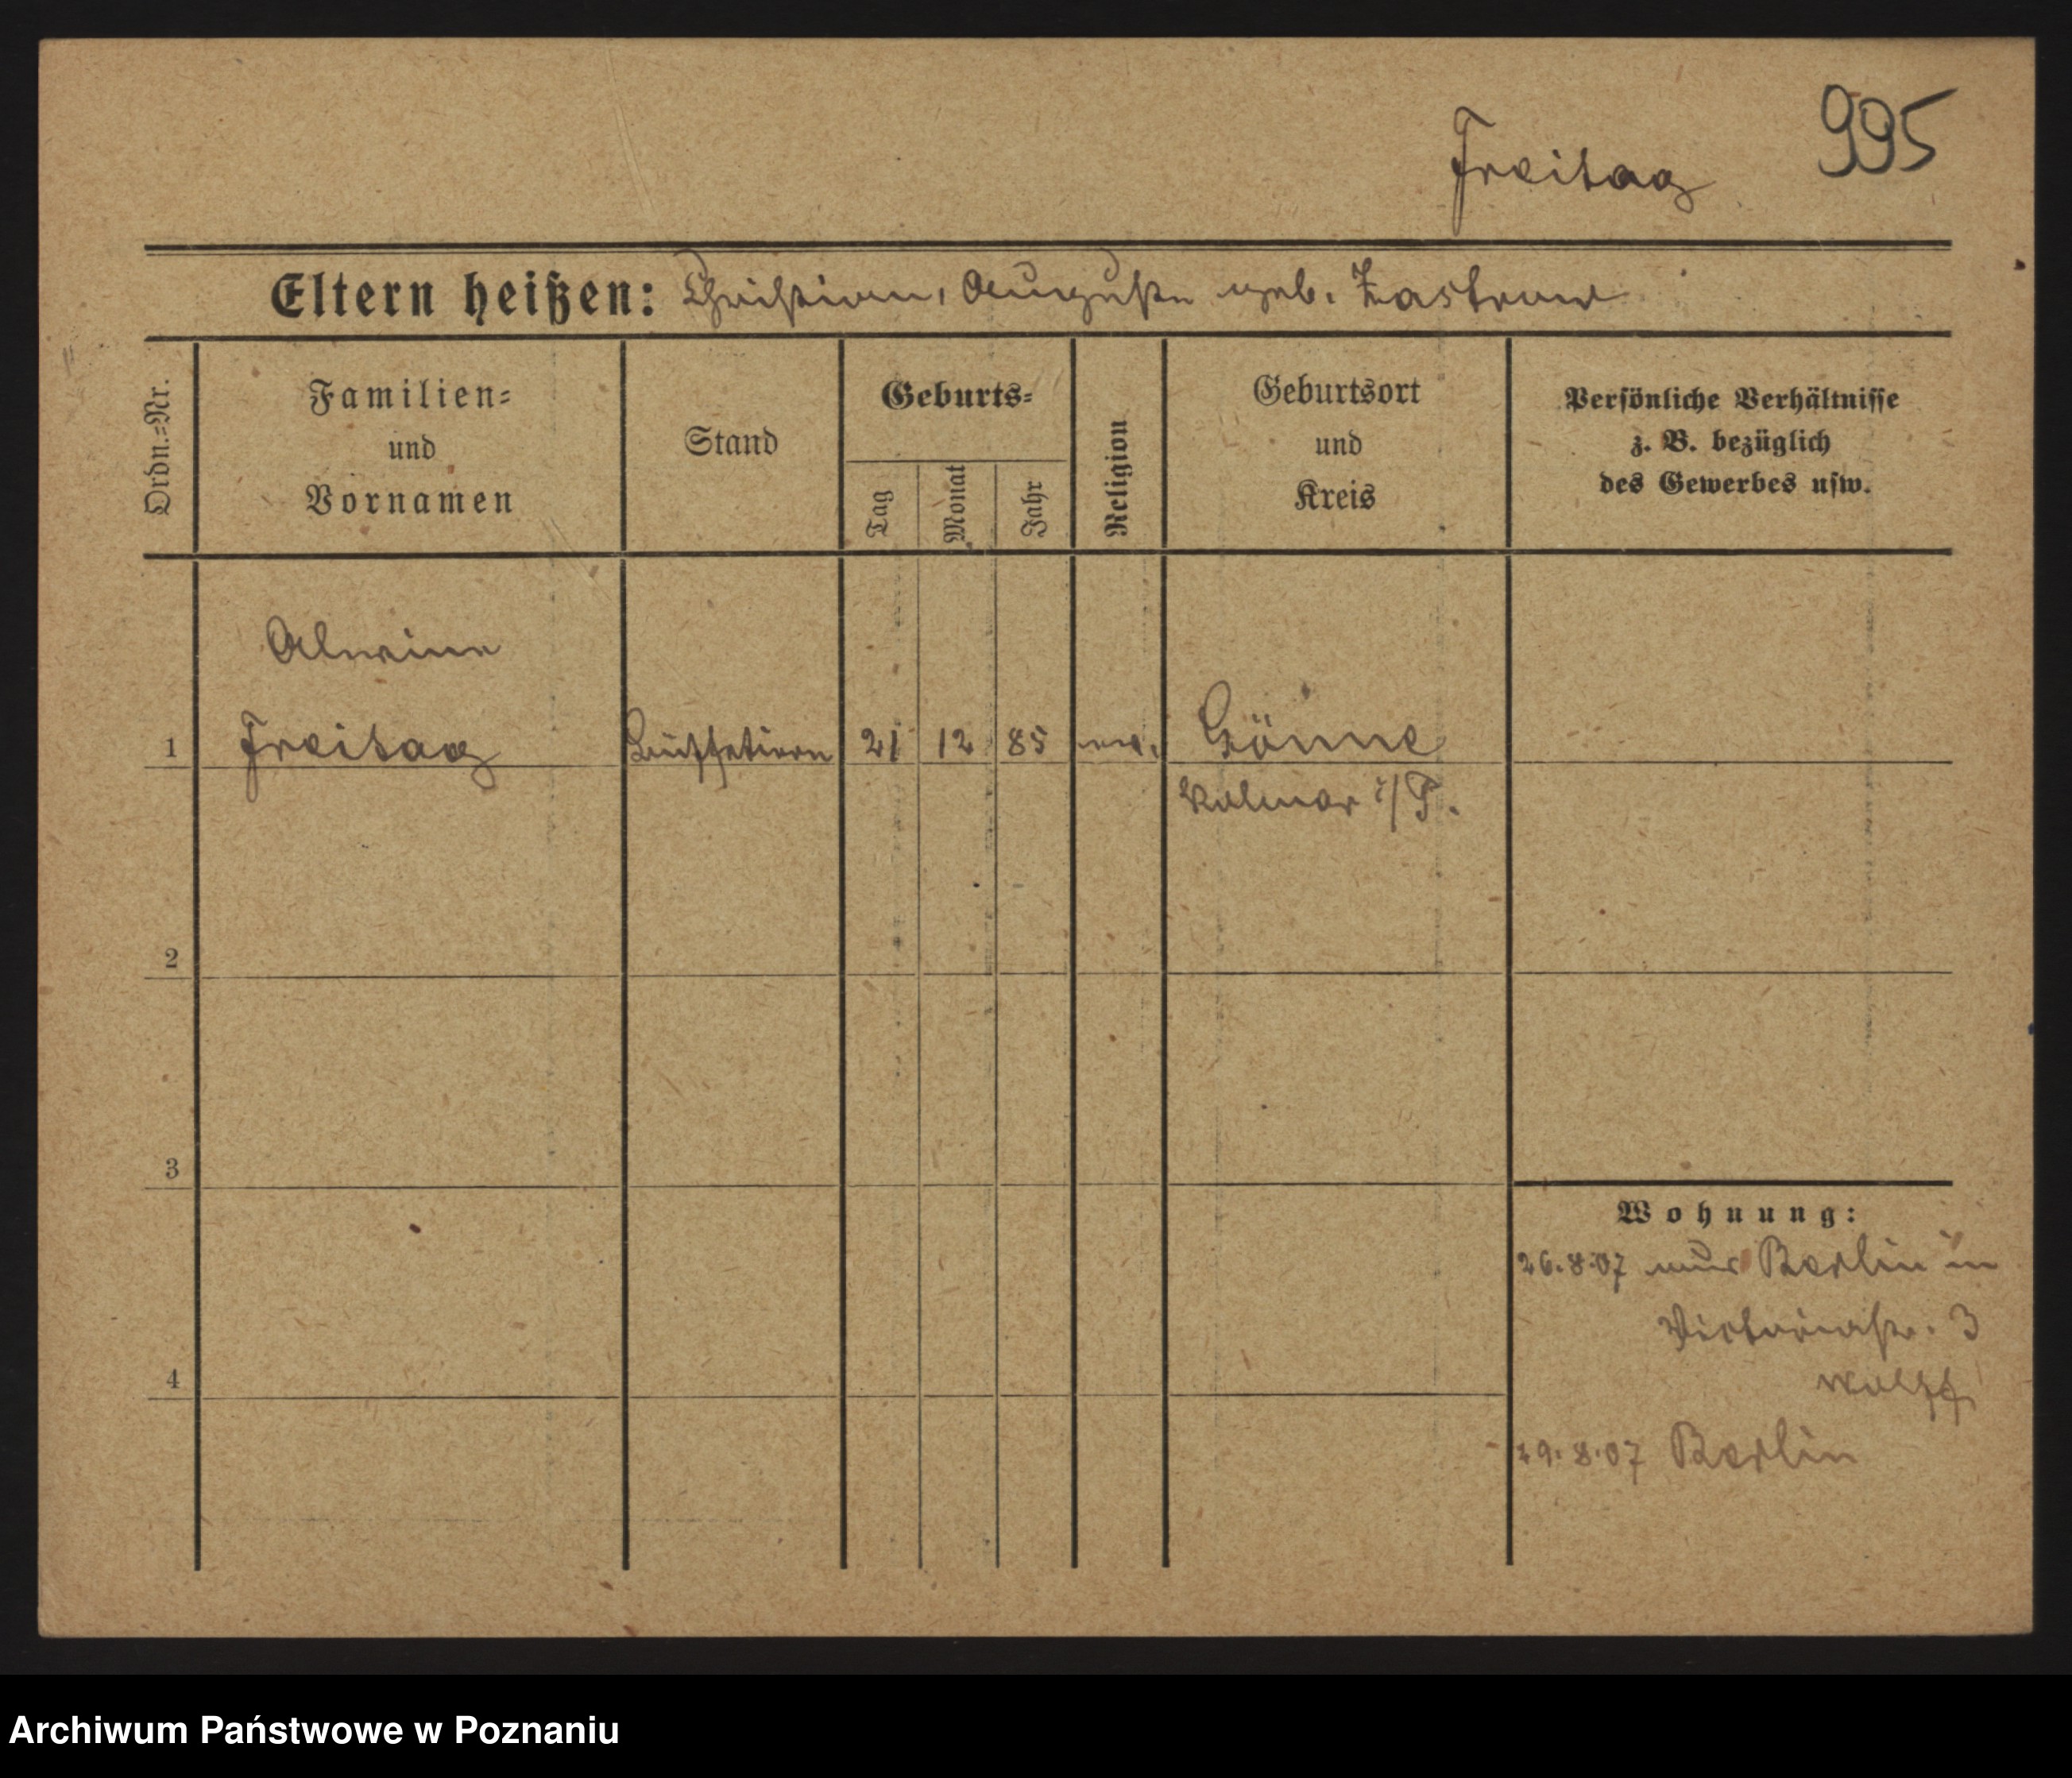 995
Freitag
Eltern heißen: Christian, Auguste geb. Zastrow
Ordn.=Nr.
Familien=
und
Vornamen
Stand
Geburts=
Tag
Monat
Jahr
Religion
Geburtsort
und
Kreis
Persönliche Verhältnisse
z. B. bezüglich
des Gewerbes usw.
Alwine
1 Freitag 21 12 85 Gönne
Kolmar i/P.
2
3
4
Wohnung:
26.8.07 aus Berlin in
Victoriastr. 3
Wolff
29.8.07 Berlin
Archiwum Państwowe w Poznaniu